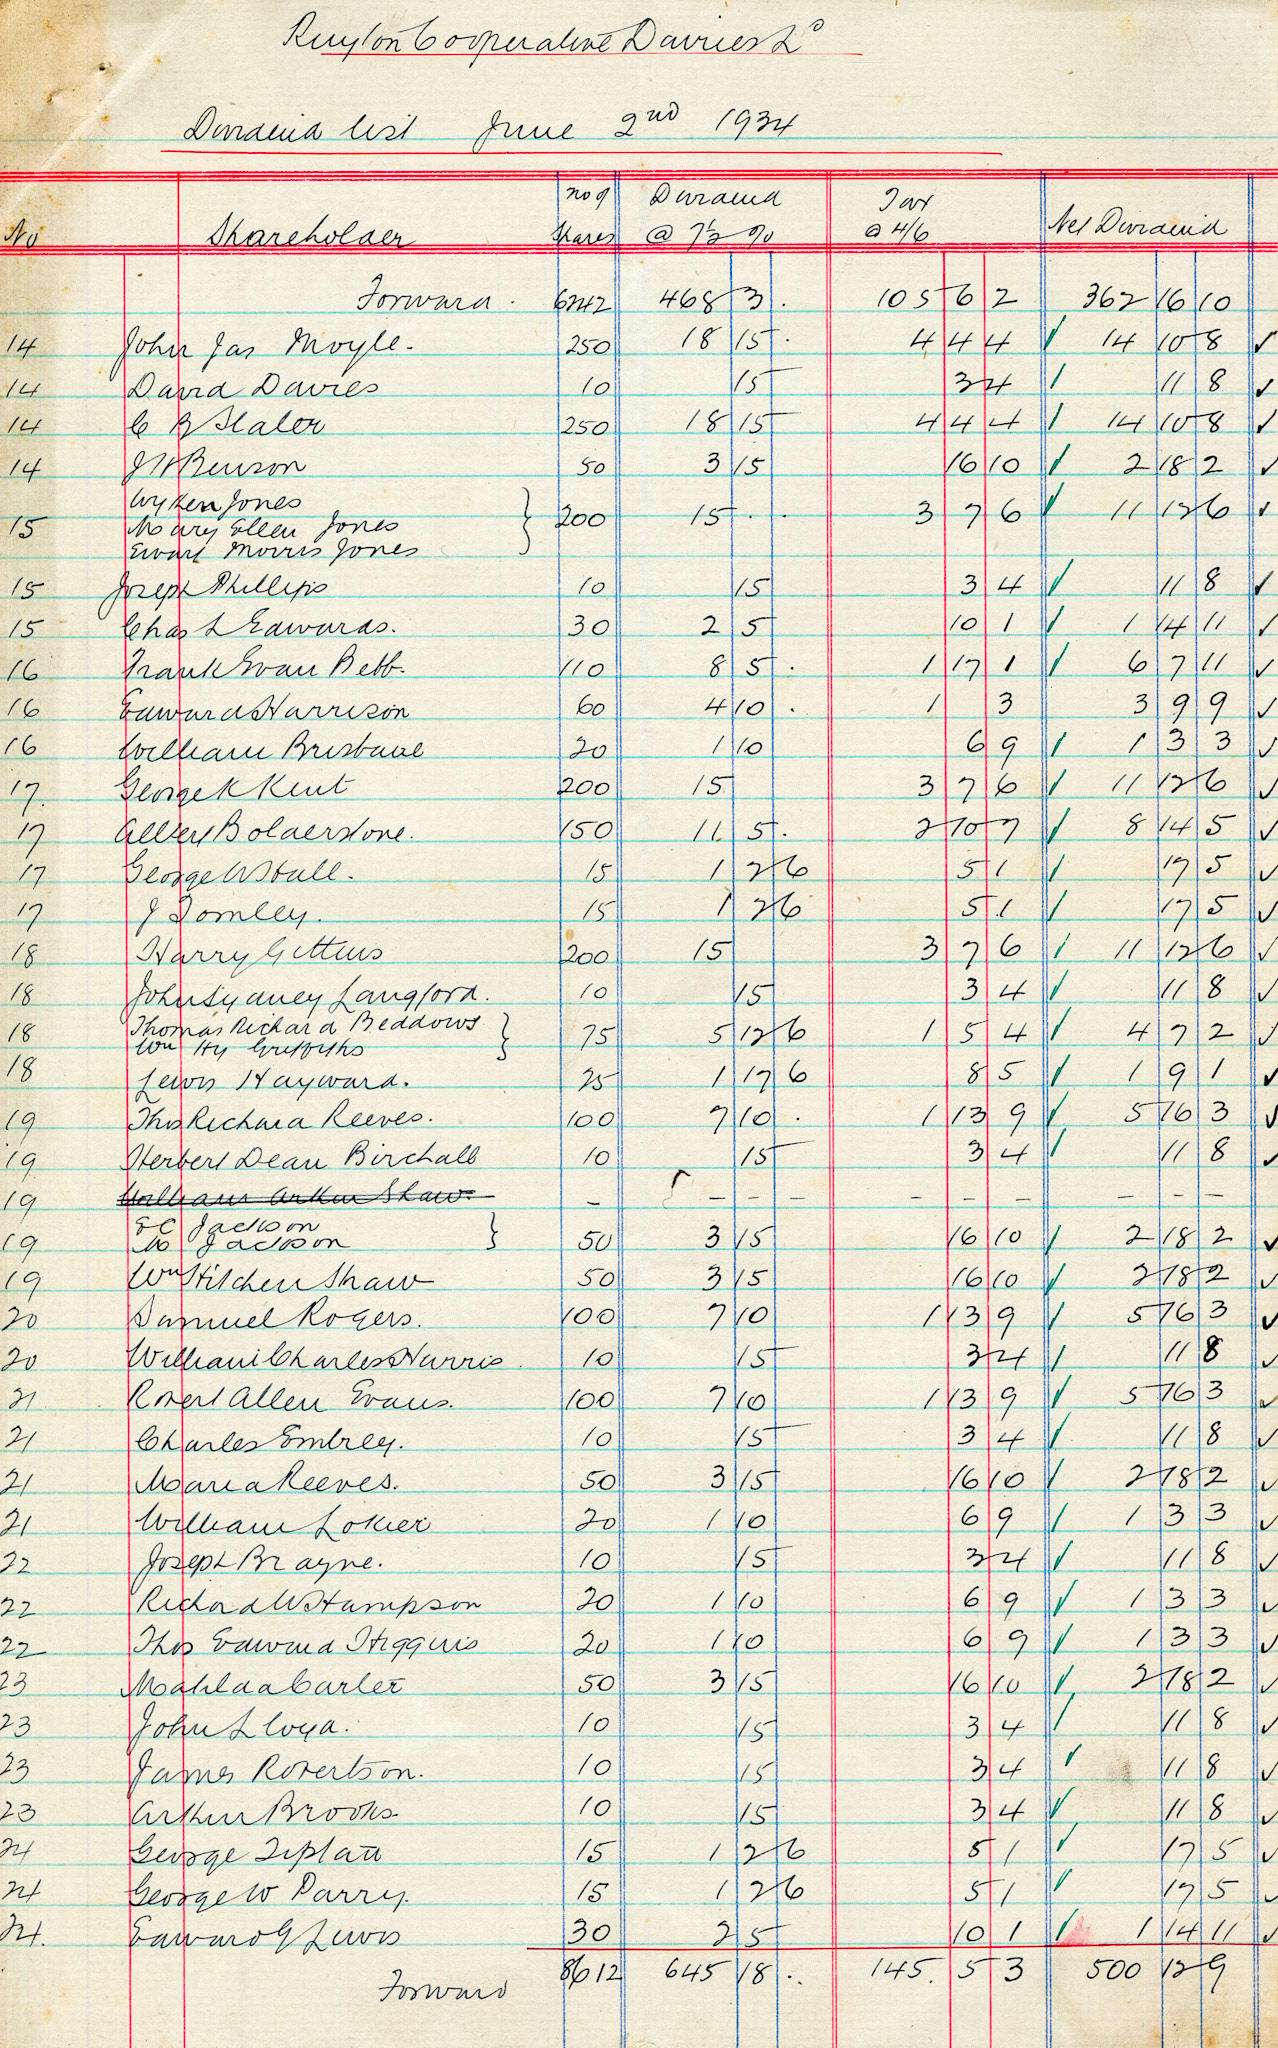 Ruyton Cooperative Dairies Lᴰ
Dividend list June 2nd 1934
No Shareholder no of Shares Dividend @ 7½ % Tax @ 4/6 Net Dividend
Forward . 6242 468 3 . 105 6 2 362 16 10
14 John Jas Moyle. 250 18 15 . 4 4 4 ✓ 14 10 8 ✓
14 David Davies 10 15 3 4 ✓ 11 8 ✓
14 C B Slater 250 18 15 4 4 4 ✓ 14 10 8 ✓
14 J W Benson 50 3 15 16 10 ✓ 2 18 2 ✓
Wyken Jones
15 Mary Ellen Jones } 200 15 . . 3 7 6 ✓ 11 12 6 ✓
Ewart Morris Jones
15 Joseph Phillips 10 15 3 4 ✓ 11 8 ✓
15 Chas L Edwards. 30 2 5 10 1 ✓ 1 14 11 ✓
16 Frank Evan Bebb. 110 8 5 . 1 17 1 ✓ 6 7 11 ✓
16 Edward Harrison 60 4 10 . 1 3 3 9 9 ✓
16 William Brisbane 20 1 10 6 9 ✓ 1 3 3 ✓
17. George K Kent 200 15 3 7 6 ✓ 11 12 6 ✓
17 Albert Bolderstone. 150 11 5 . 2 10 7 ✓ 8 14 5 ✓
17 George W Hall. 15 1 2 6 5 1 ✓ 17 5 ✓
17 J Tomley. 15 1 2 6 5 1 ✓ 17 5 ✓
18 Harry Gittins 200 15 3 7 6 ✓ 11 12 6 ✓
18 John Sydney Langford. 10 15 3 4 ✓ 11 8 ✓
18 Thomas Richard Beddows } 75 5 12 6 1 5 4 ✓ 4 7 2 ✓
Wm Hy Griffiths
18 Lewis Hayward. 25 1 17 6 8 5 ✓ 1 9 1 ✓
19 Thos Richard Reeves. 100 7 10 . 1 13 9 ✓ 5 16 3 ✓
19 Herbert Dean Birchall 10 15 3 4 ✓ 11 8 ✓
19 William Arthur Shaw. – – – – – – – – – –
E C Jackson
19 M Jackson } 50 3 15 16 10 ✓ 2 18 2 ✓
19 Wm Hitchen Shaw 50 3 15 16 10 ✓ 2 18 2 ✓
20 Samuel Rogers. 100 7 10 1 13 9 ✓ 5 16 3 ✓
20 William Charles Harris. 10 15 3 4 ✓ 11 8 ✓
21 Robert Allen Evans. 100 7 10 1 13 9 ✓ 5 16 3 ✓
21 Charles Embrey. 10 15 3 4 ✓ 11 8 ✓
21 Maria Reeves. 50 3 15 16 10 ✓ 2 18 2 ✓
21 William Lokier 20 1 10 6 9 ✓ 1 3 3 ✓
22 Joseph Brayne. 10 15 3 4 ✓ 11 8 ✓
22 Richard W Hampson 20 1 10 6 9 ✓ 1 3 3 ✓
22 Thos Edward Higgins 20 1 10 6 9 ✓ 1 3 3 ✓
23 Mahlda Carter 50 3 15 16 10 ✓ 2 18 2 ✓
23 John Lloyd. 10 15 3 4 ✓ 11 8 ✓
23 James Robertson. 10 15 3 4 ✓ 11 8 ✓
23 Arthur Brooks. 10 15 3 4 ✓ 11 8 ✓
24 George Tiplady 15 1 2 6 5 1 ✓ 17 5 ✓
24 George W Parry. 15 1 2 6 5 1 ✓ 17 5 ✓
24. Edward G Lewis 30 2 5 10 1 ✓ 1 14 11 ✓
Forward 8612 645 18 . . 145. 5 3 500 12 9